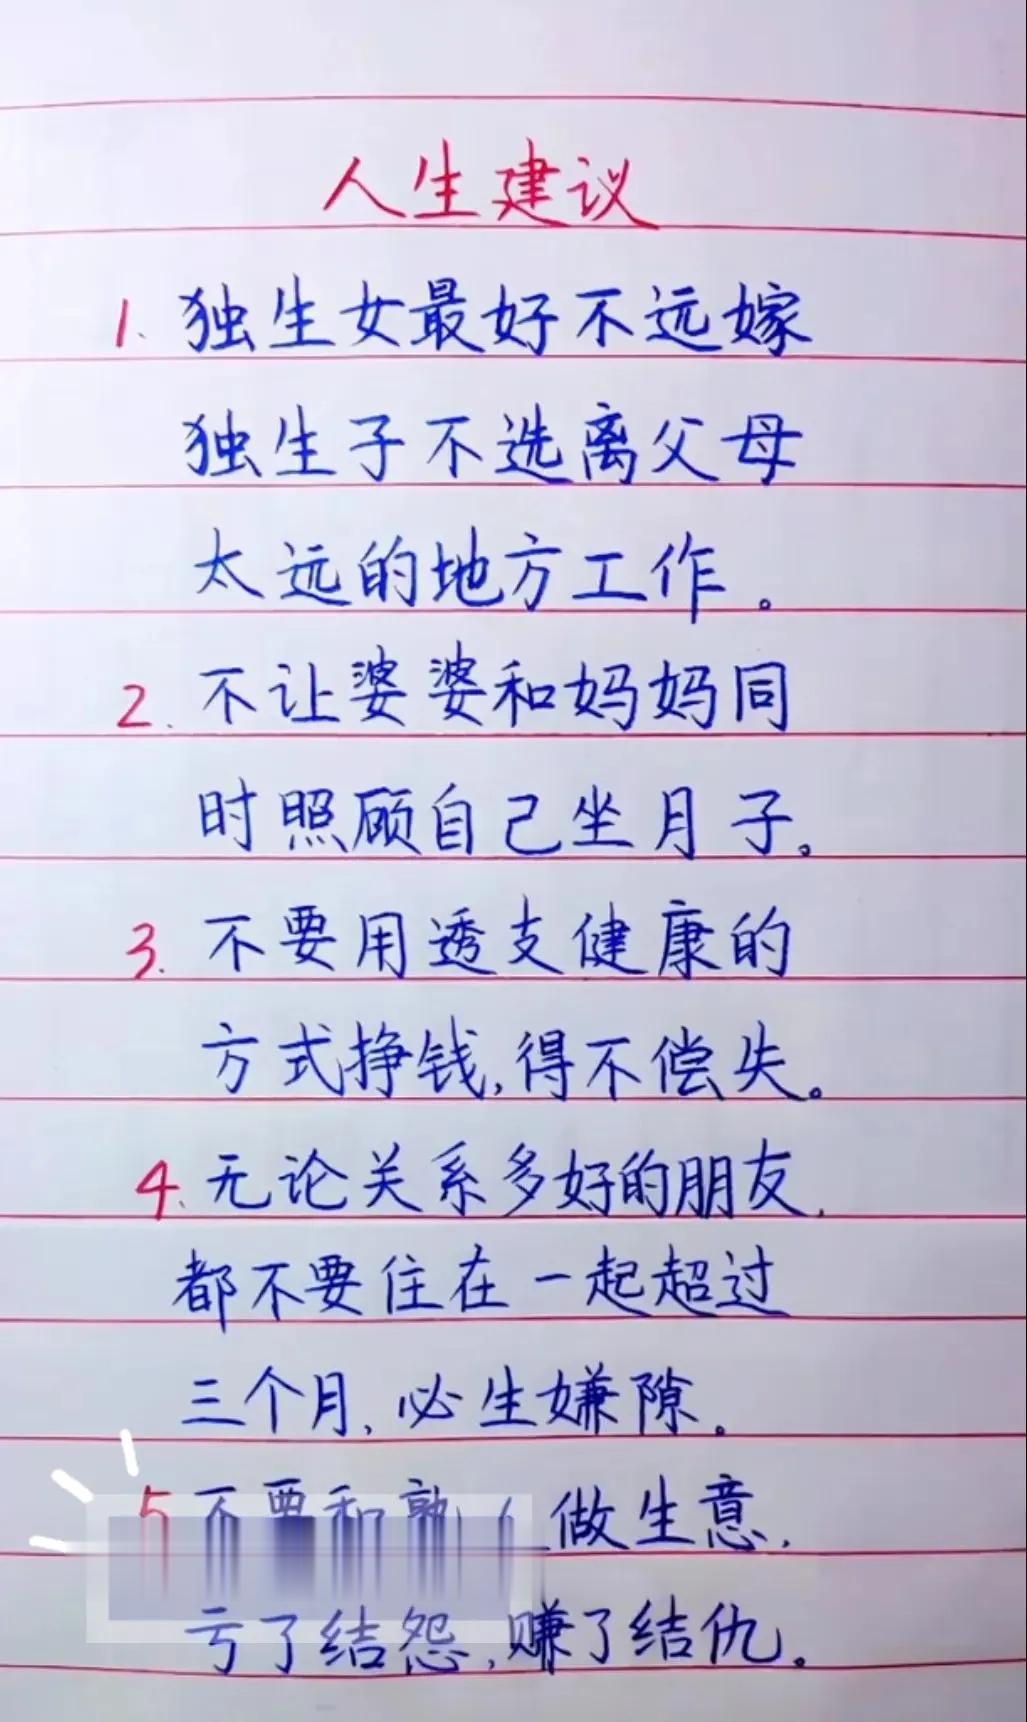 人生建议
1. 独生女最好不远嫁
独生子不选离父母
太远的地方工作。
2. 不让婆婆和妈妈同
时照顾自己坐月子。
3. 不要用透支健康的
方式挣钱,得不偿失。
4. 无论关系多好的朋友,
都不要住在一起超过
三个月,必生嫌隙。
5 不要和熟人做生意,
亏了结怨,赚了结仇。